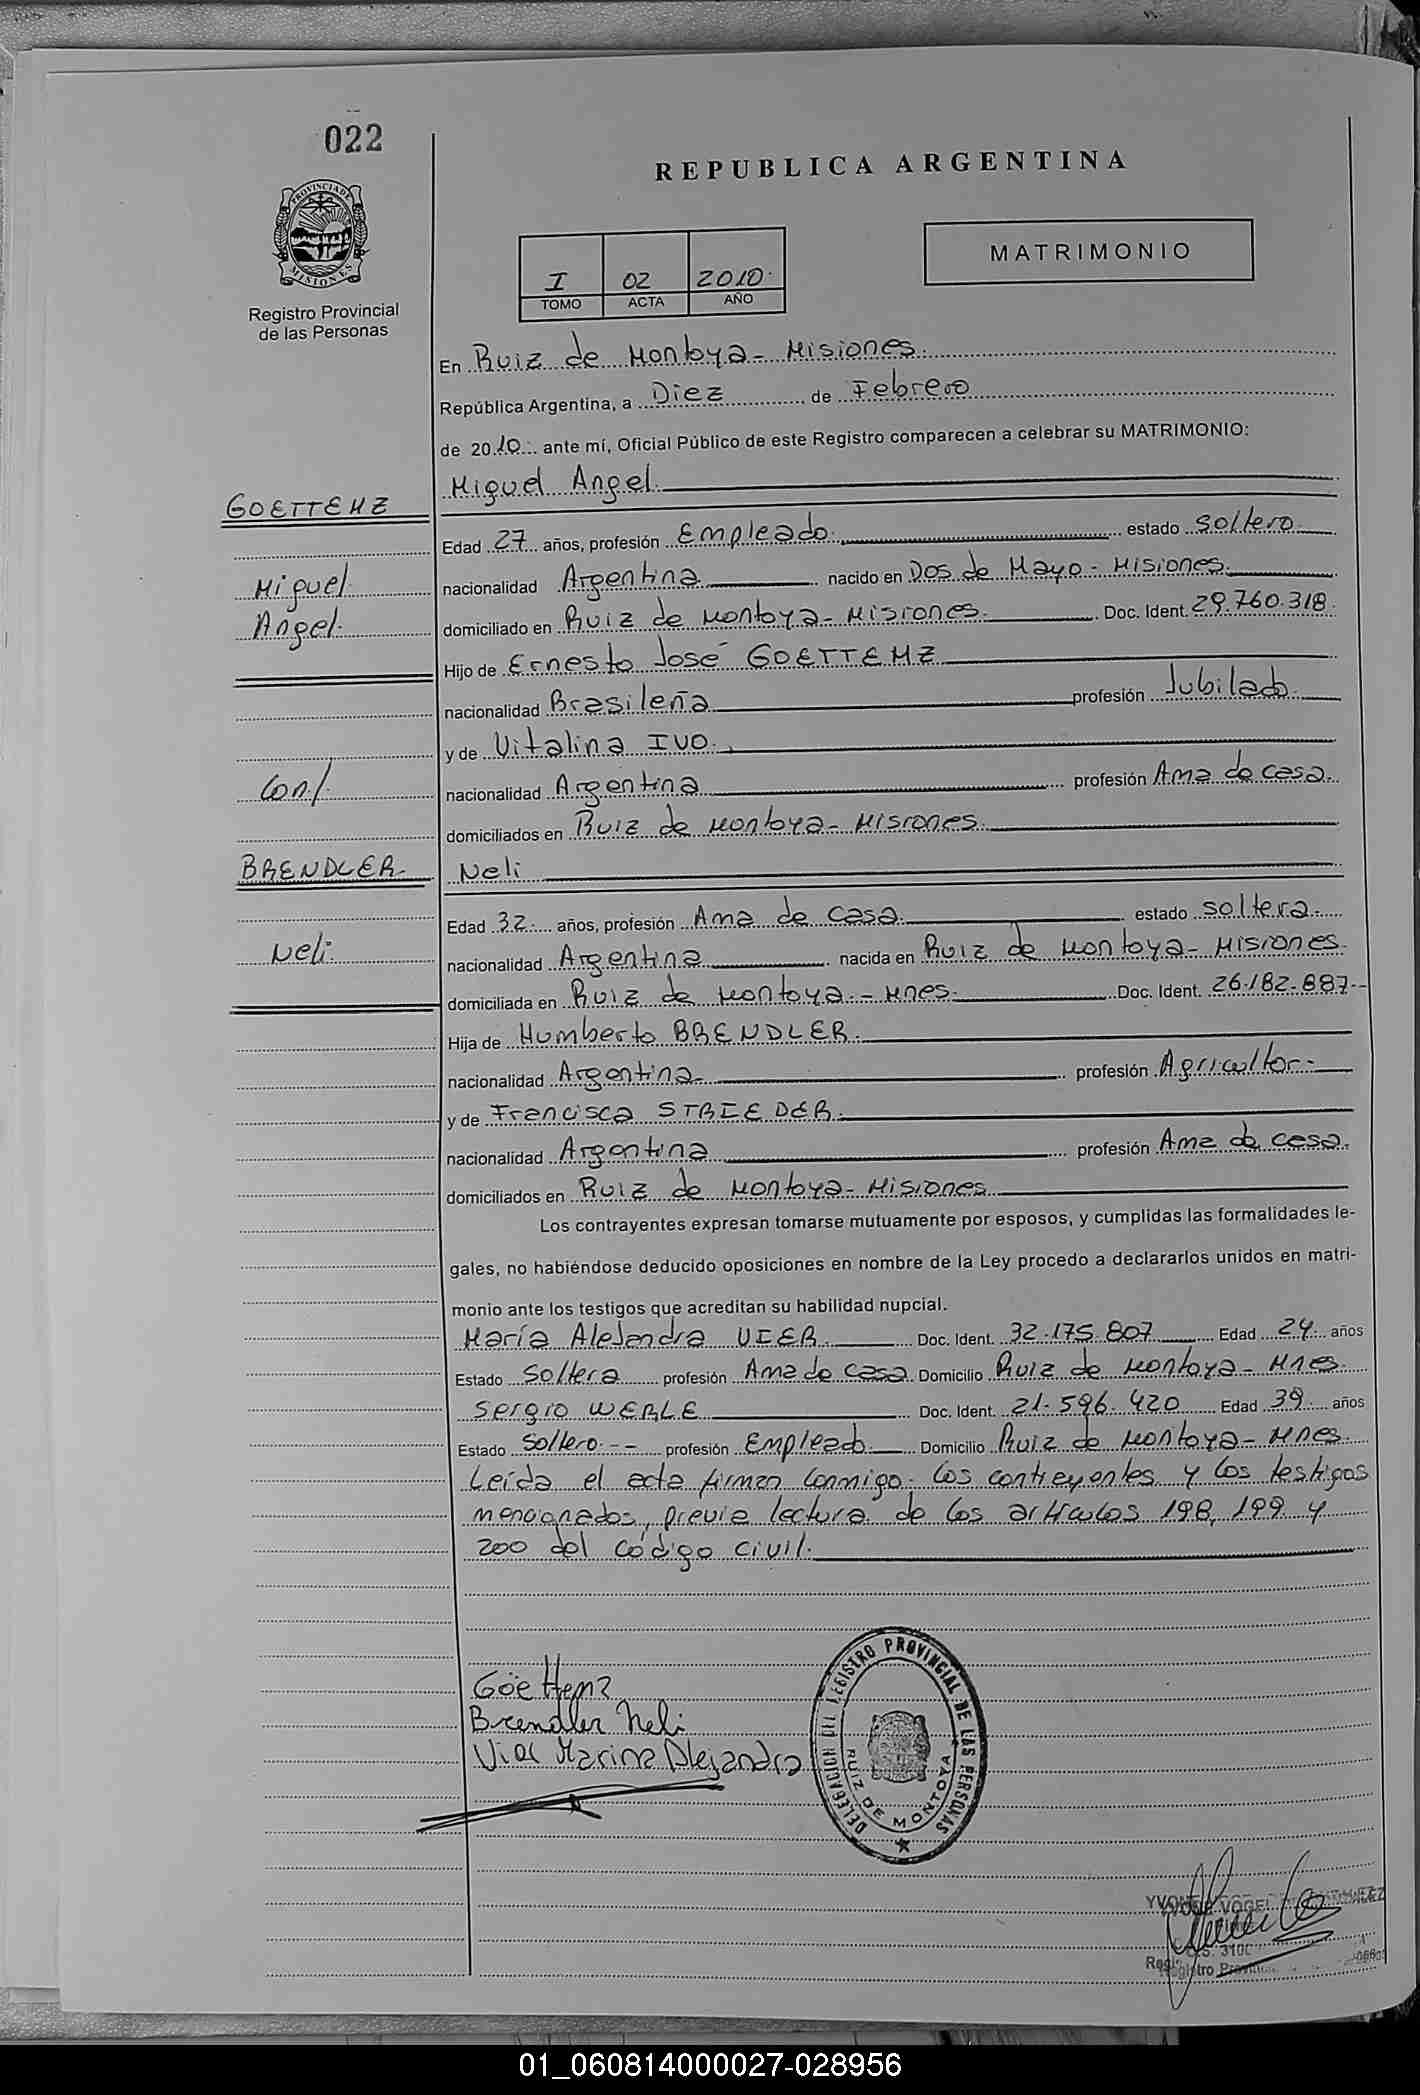 022
REPUBLICA ARGENTINA
PROVINCIA DE
MISIONES
Registro Provincial
de las Personas
I 02 2010
TOMO ACTA AÑO
MATRIMONIO
En Ruiz de Montoya - Misiones.
República Argentina, a Diez de Febrero
de 2010 ante mí, Oficial Público de este Registro comparecen a celebrar su MATRIMONIO:
GOETTEMZ
Miguel Angel.
Edad 27 años, profesión Empleado. estado Soltero.
Miguel
nacionalidad Argentina nacido en Dos de Mayo - Misiones.
Angel.
domiciliado en Ruiz de Montoya - Misiones. Doc. Ident. 29.760.318.
Hijo de Ernesto José GOETTEMZ
nacionalidad Brasileña profesión Jubilado.
y de Vitalina IVO.
Con/.
nacionalidad Argentina profesión Ama de casa.
domiciliados en Ruiz de Montoya - Misiones.
BRENDLER.
Neli
Edad 32 años, profesión Ama de casa. estado soltera.
Neli.
nacionalidad Argentina nacida en Ruiz de Montoya - Misiones.
domiciliada en Ruiz de Montoya. - Mnes. Doc. Ident. 26.182.887.--
Hija de Humberto BRENDLER.
nacionalidad Argentina profesión Agricultor.-
y de Francisca STRIEDER.
nacionalidad Argentina profesión Ama de casa.
domiciliados en Ruiz de Montoya - Misiones.
Los contrayentes expresan tomarse mutuamente por esposos, y cumplidas las formalidades le-
gales, no habiéndose deducido oposiciones en nombre de la Ley procedo a declararlos unidos en matri-
monio ante los testigos que acreditan su habilidad nupcial.
María Alejandra VIER. Doc. Ident. 32.175.807 Edad 24 años
Estado Soltera profesión Ama de casa. Domicilio Ruiz de Montoya - Mnes.
Sergio WERLE Doc. Ident. 21.596.420 Edad 39 años
Estado Soltero.-- profesión Empleado. Domicilio Ruiz de Montoya - Mnes.
Leída el acta firman conmigo. los contrayentes y los testigos
mencionados, previa lectura de los artículos 198, 199 y
200 del código civil.
Göettemz
Brendler Neli
Vier Marina Alejandra
DELEGACION DEL REGISTRO PROVINCIAL DE LAS PERSONAS
RUIZ DE MONTOYA
VOGEL
3100
01_060814000027-028956